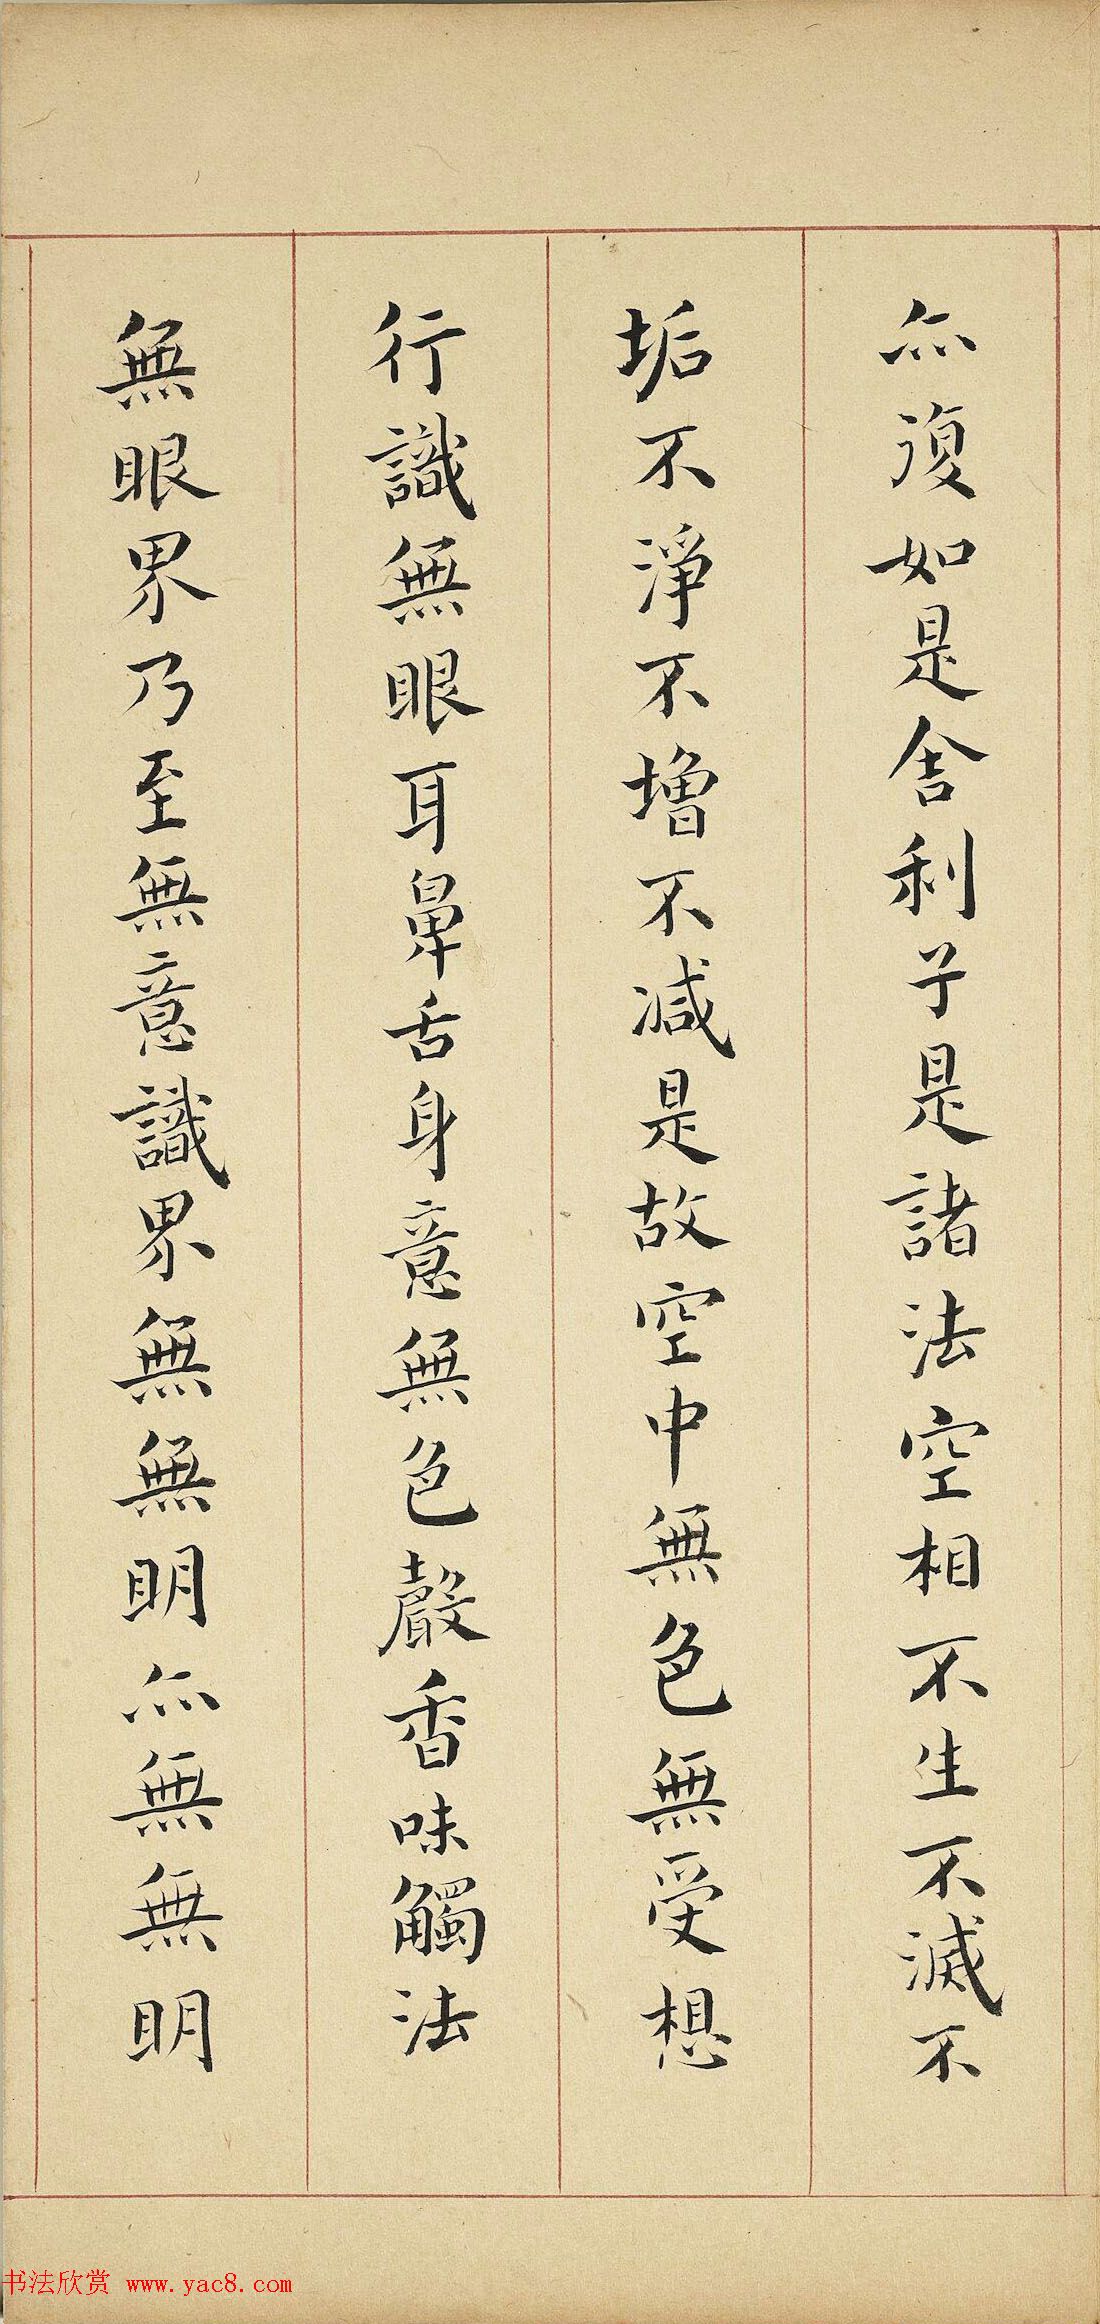 亦復如是舍利子是諸法空相不生不滅不
垢不淨不增不減是故空中無色無受想
行識無眼耳鼻舌身意無色聲香味觸法
無眼界乃至無意識界無無明亦無無明
书法欣赏 www.yac8.com